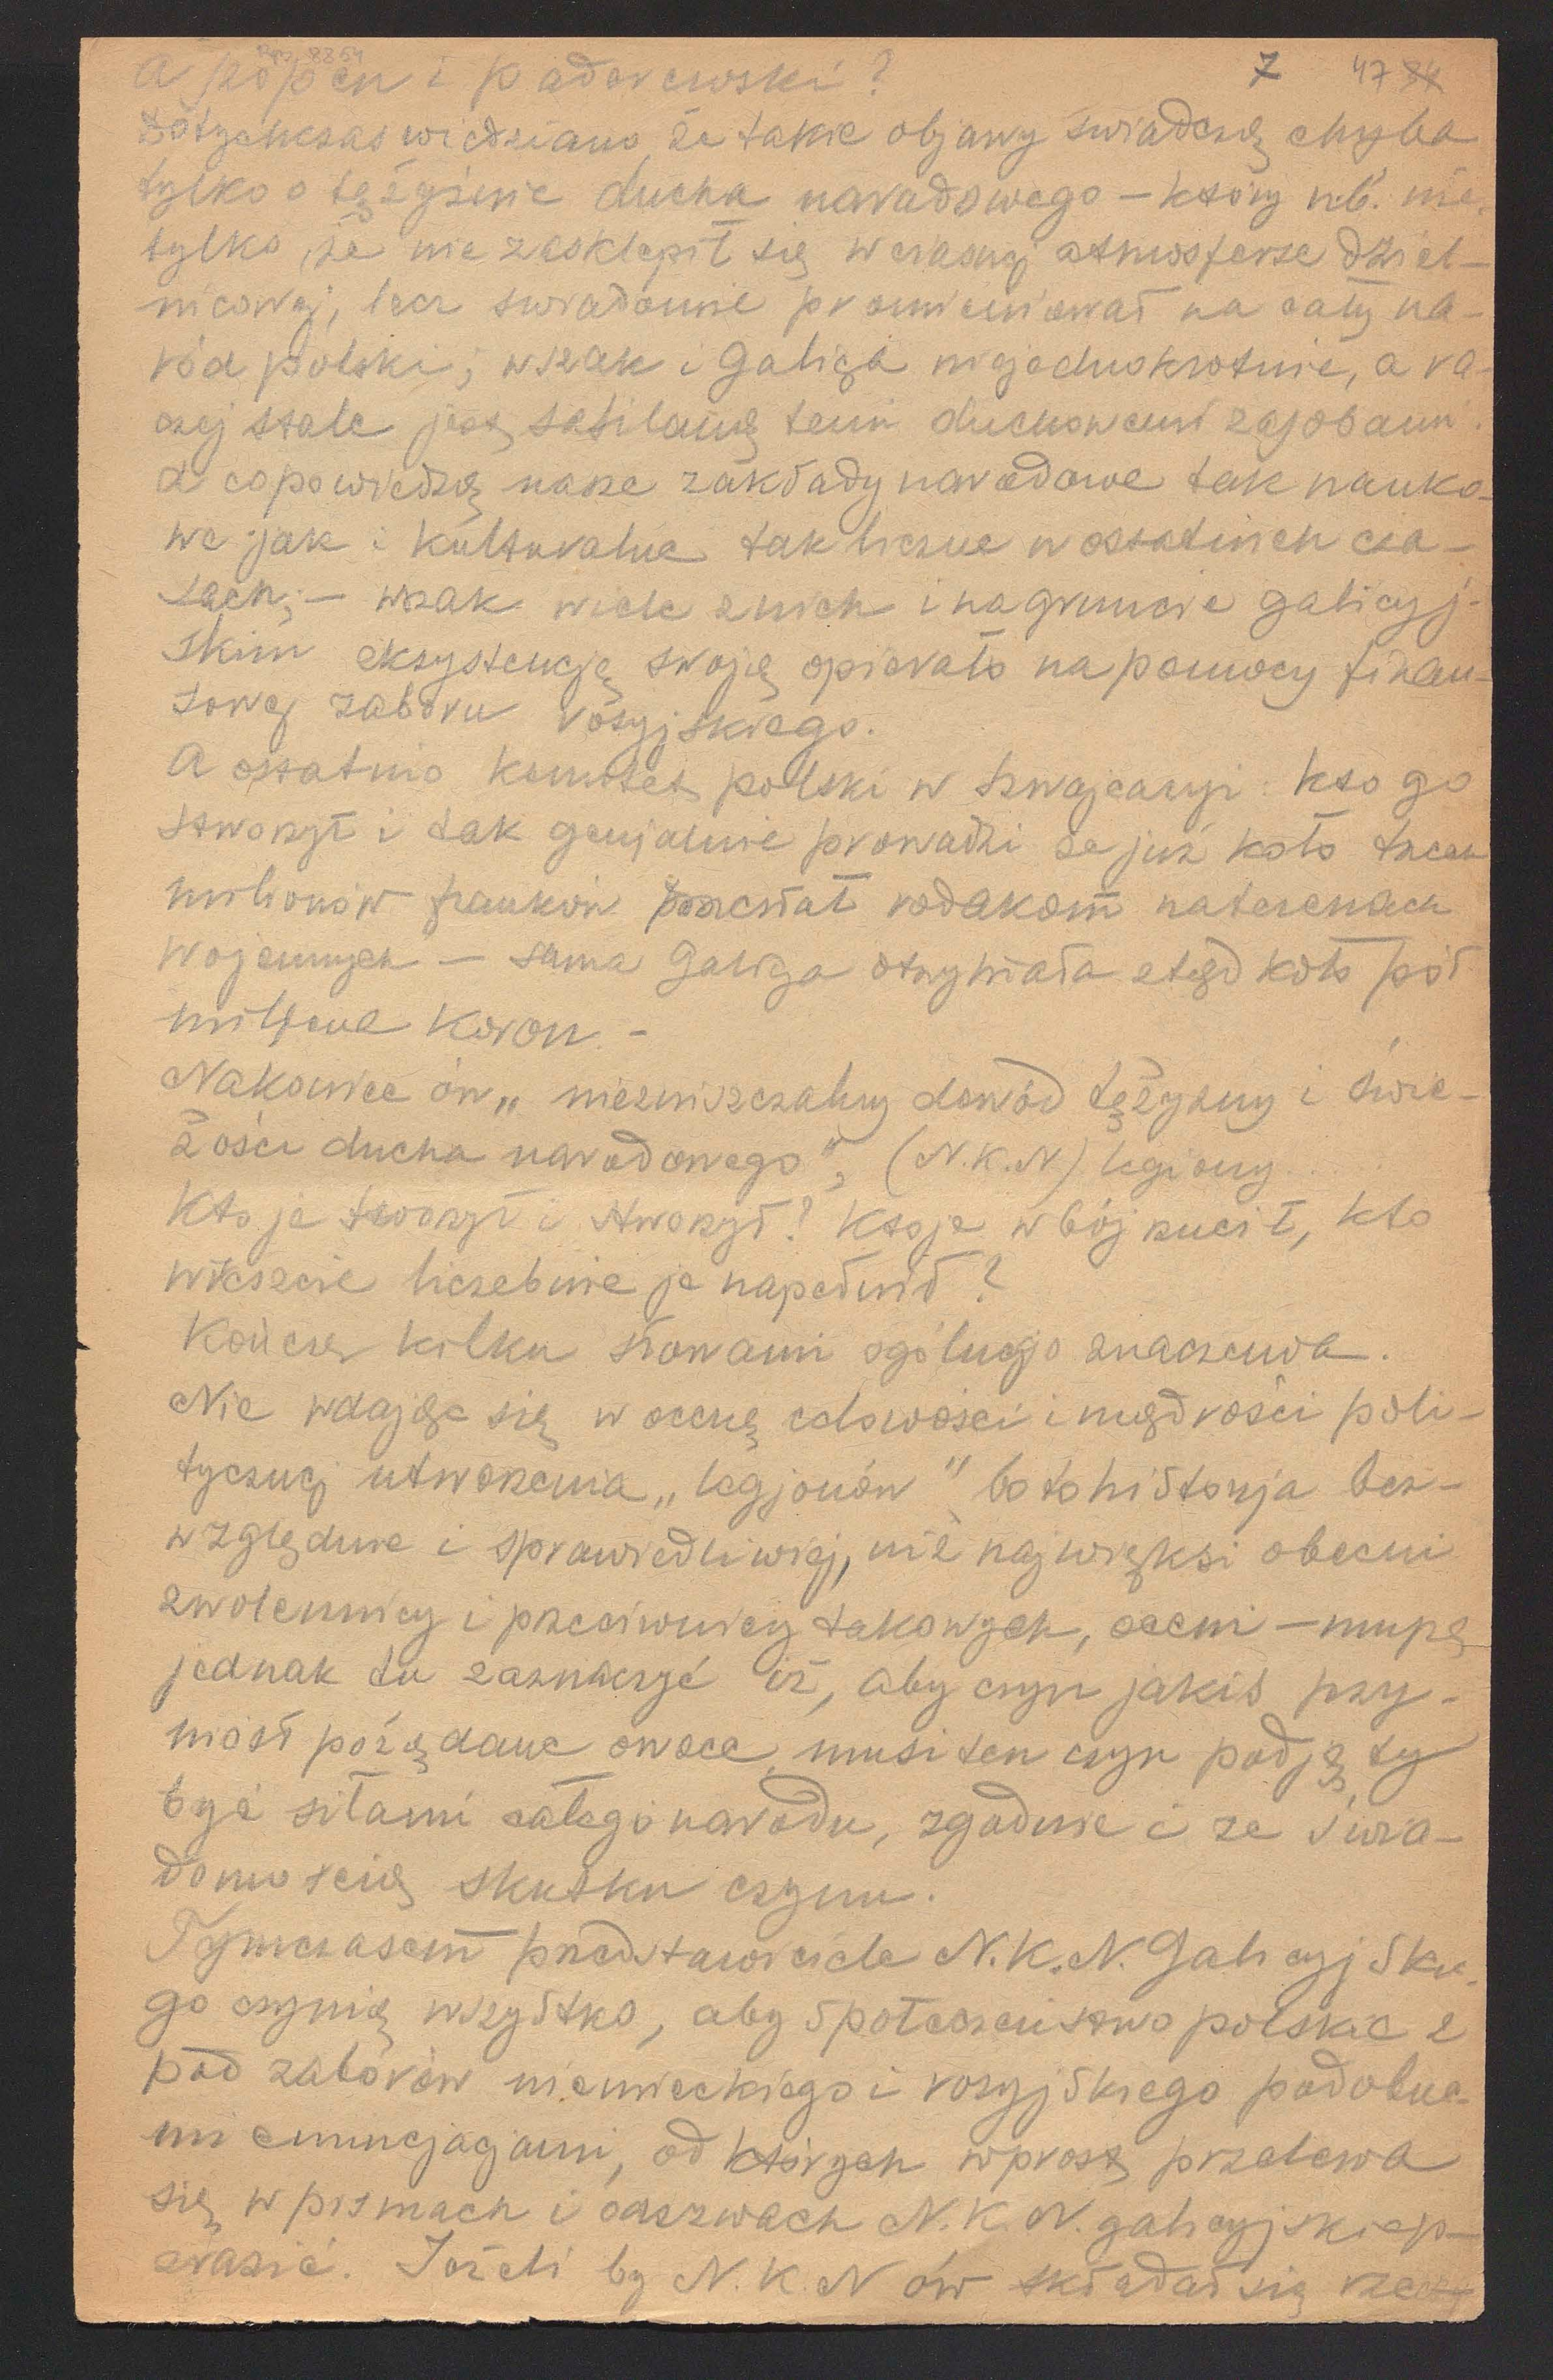 Rps 8854
7 47 84
A Szopen i Paderewski?
Dotychczas wiedziano, że takie objawy świadczą chyba
tylko o tężyźnie ducha narodowego – który nb. nie
tylko, że nie zasklepił się w ciasnej atmosferze dziel-
nicowej, lecz świadomie promieniował na cały na-
ród polski; wszak i Galicja niejednokrotnie, a ra-
czej stale jest zasilaną temi duchowemi zasobami.
A co powiedzą nasze zakłady narodowe tak nauko-
we jak i kulturalne tak liczne w ostatnich cza-
sach; – wszak wiele z nich i na gruncie galicyj-
skim eksystencję swoją opierało na pomocy finan-
sowej zaboru rosyjskiego.
A ostatnio komitet polski w Szwajcaryi: kto go
stworzył i tak genjalnie prowadzi że już koło trzech
milionów franków przesłał rodakom na terenach
wojennych – sama Galicja otrzymała stąd koło pół
miljona koron. –
Nakoniec ów „niezniszczalny dowód tężyzny i świe-
żości ducha narodowego", (N.K.N) legiony...
Kto je tworzył i stworzył? Kto je w bój rzucił, kto
wreszcie liczebnie je napełnił?
Kończę kilku słowami ogólnego znaczenia.
Nie wdając się w ocenę celowości i mądrości poli-
tycznej utworzenia „legjonów" bo to historja bez-
względnie i sprawiedliwiej, niż najwięksi obecni
zwolennicy i przeciwnicy takowych, oceni – muszę
jednak tu zaznaczyć iż, aby czyn jakiś przy-
niósł pożądane owoce, musi ten czyn podjęty
być siłami całego narodu, zgodnie i ze świa-
domością skutku czynu.
Tymczasem przedstawiciele N.K.N. Galicyjskie-
go czynią wszystko, aby społeczeństwo polskie z
pod zaborów niemieckiego i rosyjskiego podobne-
mi enuncjacjami, od których wprost przelewa
się w pismach i odezwach N.K.N. galicyjskiego –
zrazić. Jeżeli by N.K.N ów składał się rzeczy